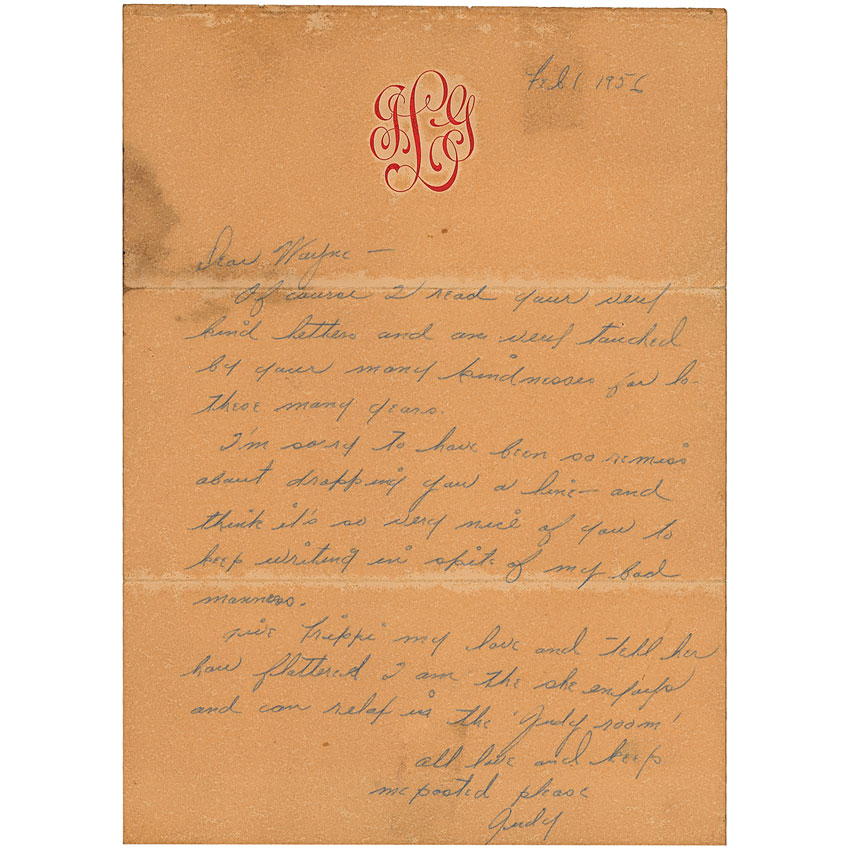 Feb 1 1956
Dear Wayne —
Of course I read your very
kind letters and am very touched
by your many kindnesses for lo-
these many years.
I'm sorry to have been so remiss
about dropping you a line — and
think it's so very nice of you to
keep writing in spite of my bad
manners.
Give Trippi my love and tell her
how flattered I am the she enjoys
and can relax in the 'Judy room'
all love and keep
me posted please
Judy